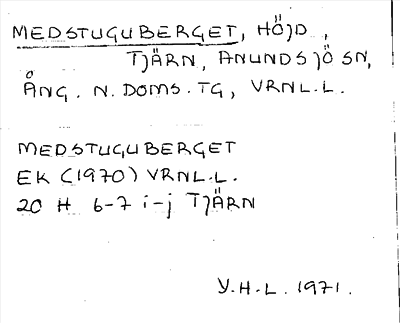 MEDSTUGUBERGET, HÖJD,
TJÄRN, ANUNDSJÖ SN,
ÅNG. N. DOMS. TG, VRNL.L.
MEDSTUGUBERGET
EK (1970) VRNL.L.
20 H 6-7 i-j TJÄRN
Y.H-L. 1971.